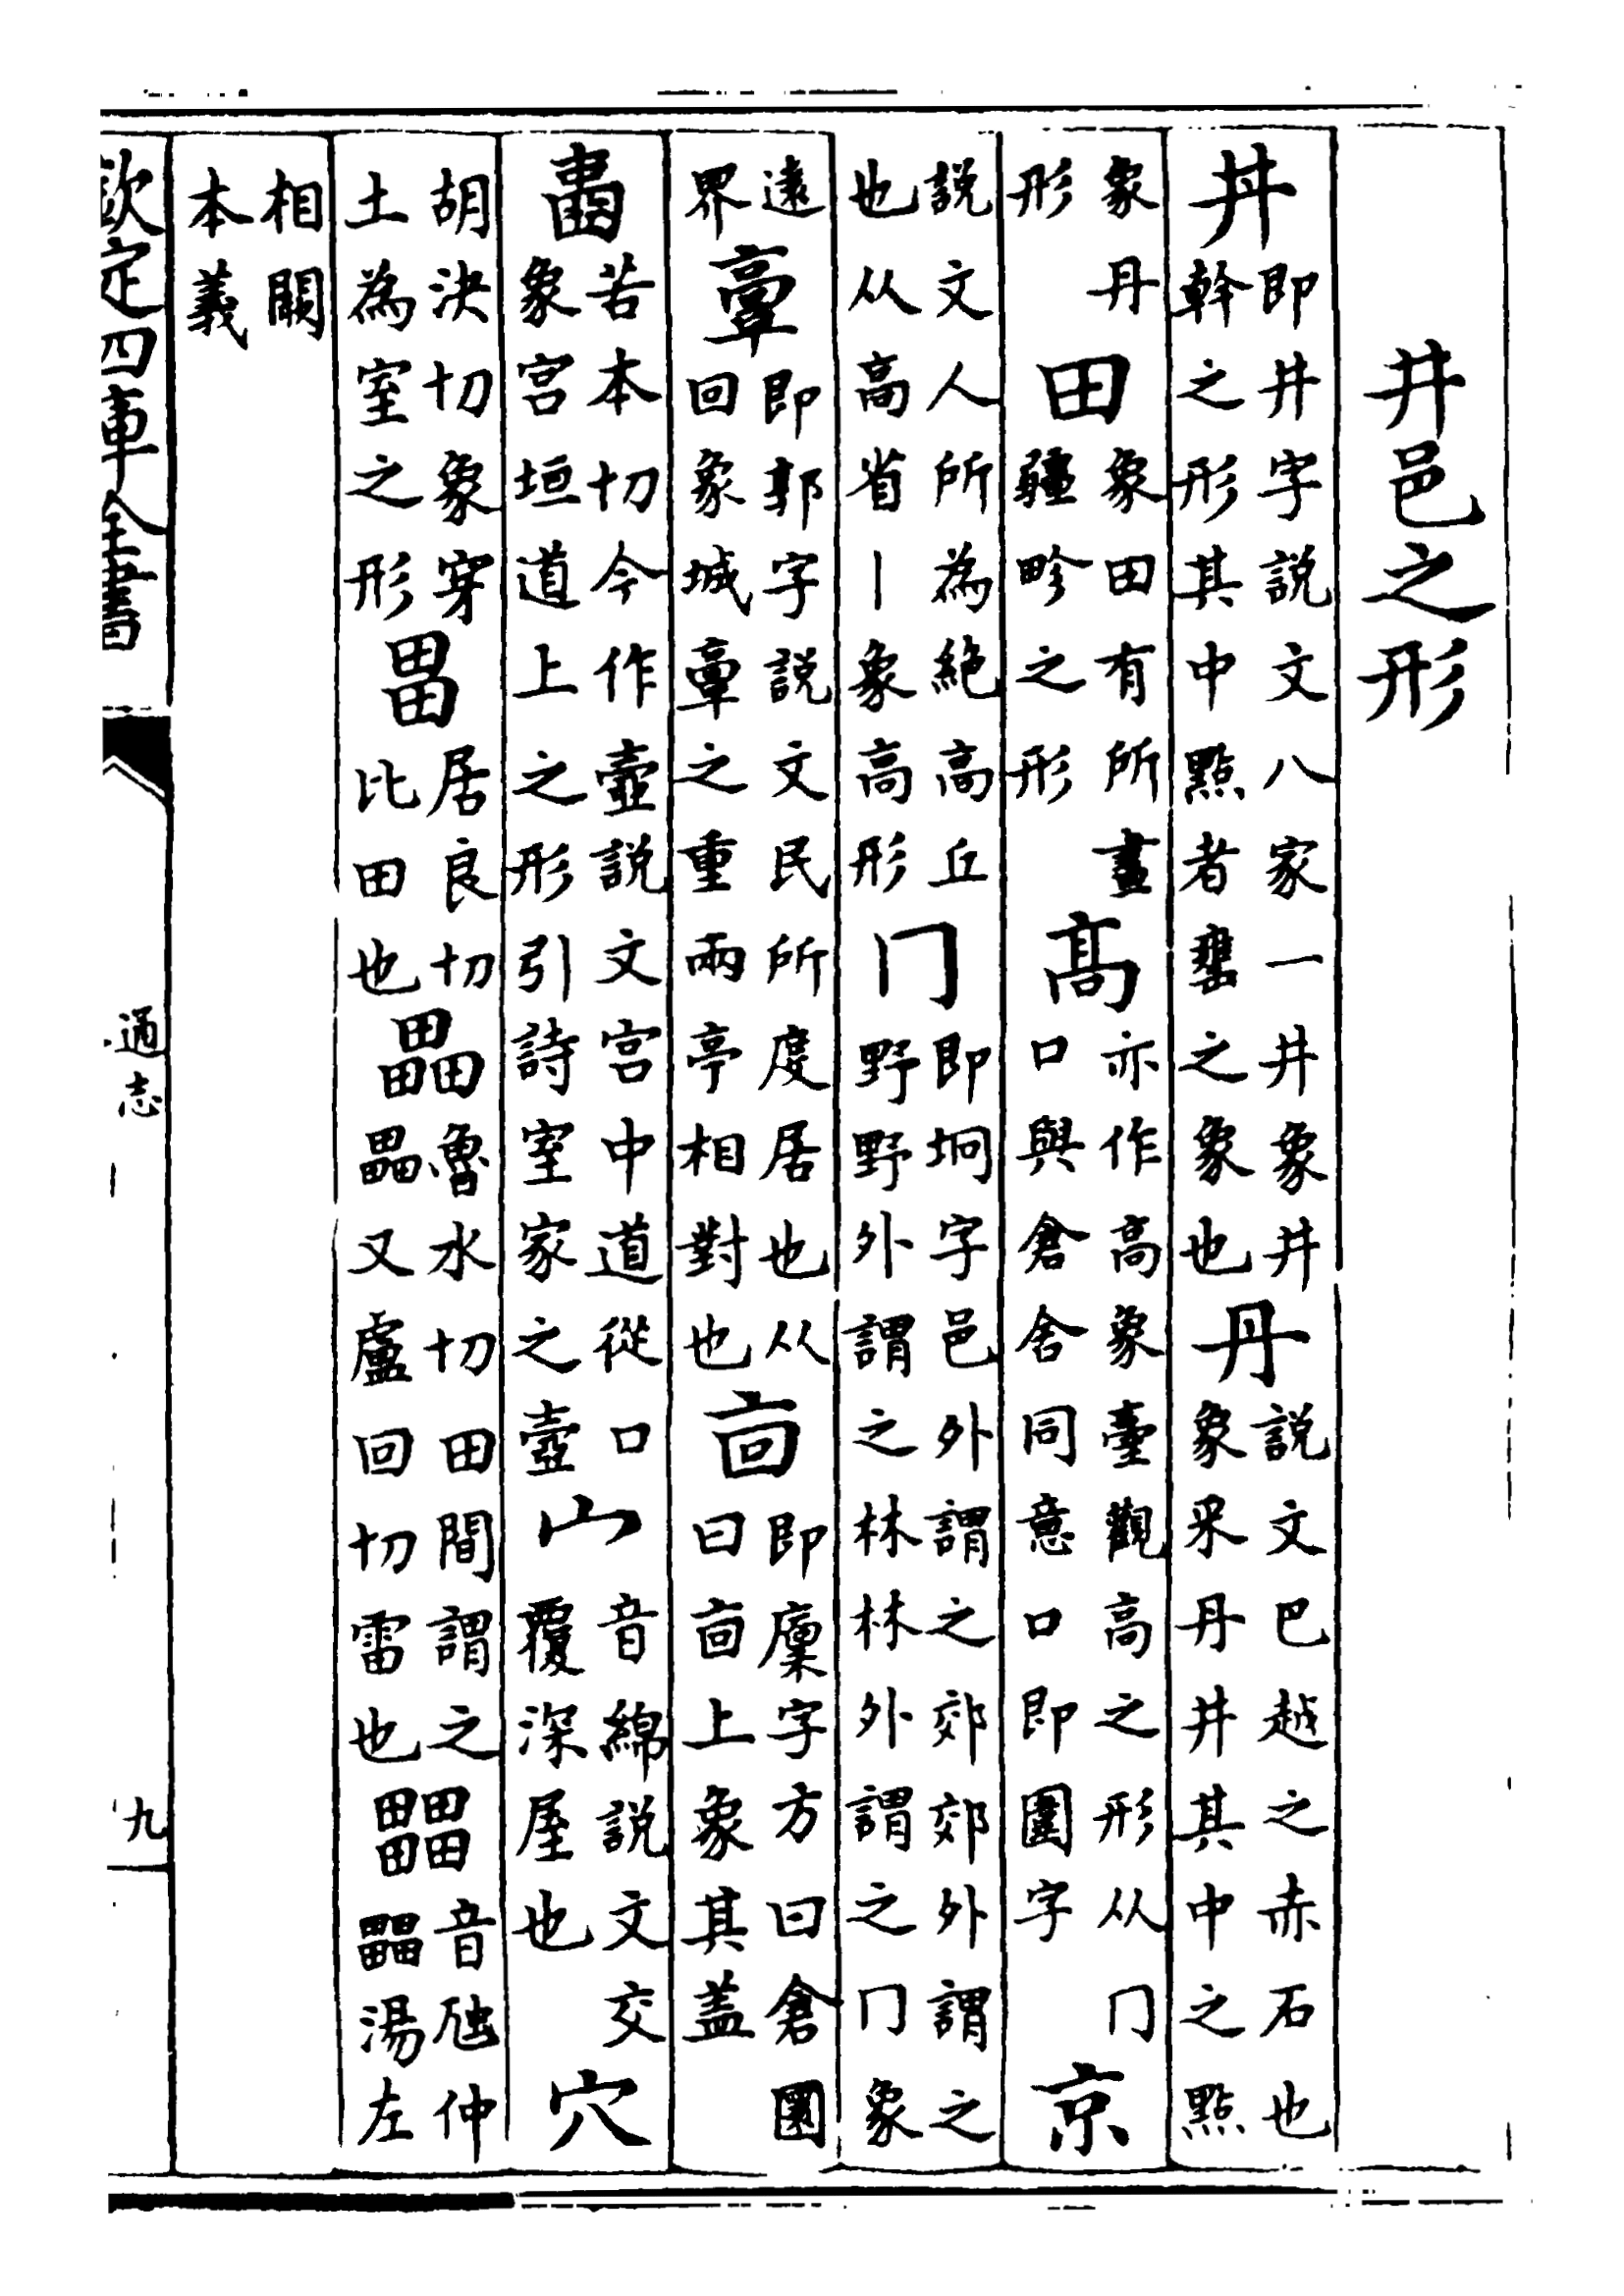 井邑之形
丼即井字説文八家一井象井幹之形其中點者罋之象也丹説文巴越之赤石也象采丹井其中之點
象丹形田象田有所畫疆畛之形髙亦作高象臺觀高之形从冂口與倉舍同意口即圍字京
説文人所為絶高丘也从高省丨象高形冂即坰字邑外謂之郊郊外謂之野野外謂之林林外謂之冂象
遠界𩫏即郭字説文民所度居也从回象城𩫏之重兩亭相對也㐭即廩字方曰倉圓曰㐭上象其盖
苦本切今作壼説文宫中道從口象宫垣道上之形引詩室家之壼宀音綿説文交覆深屋也穴
胡決切象穿土為室之形畕居良切比田也畾魯水切田間謂之畾又盧回切雷也𤳳音虺仲𤳳湯左
相關本義
欽定四庫全書
通志
九